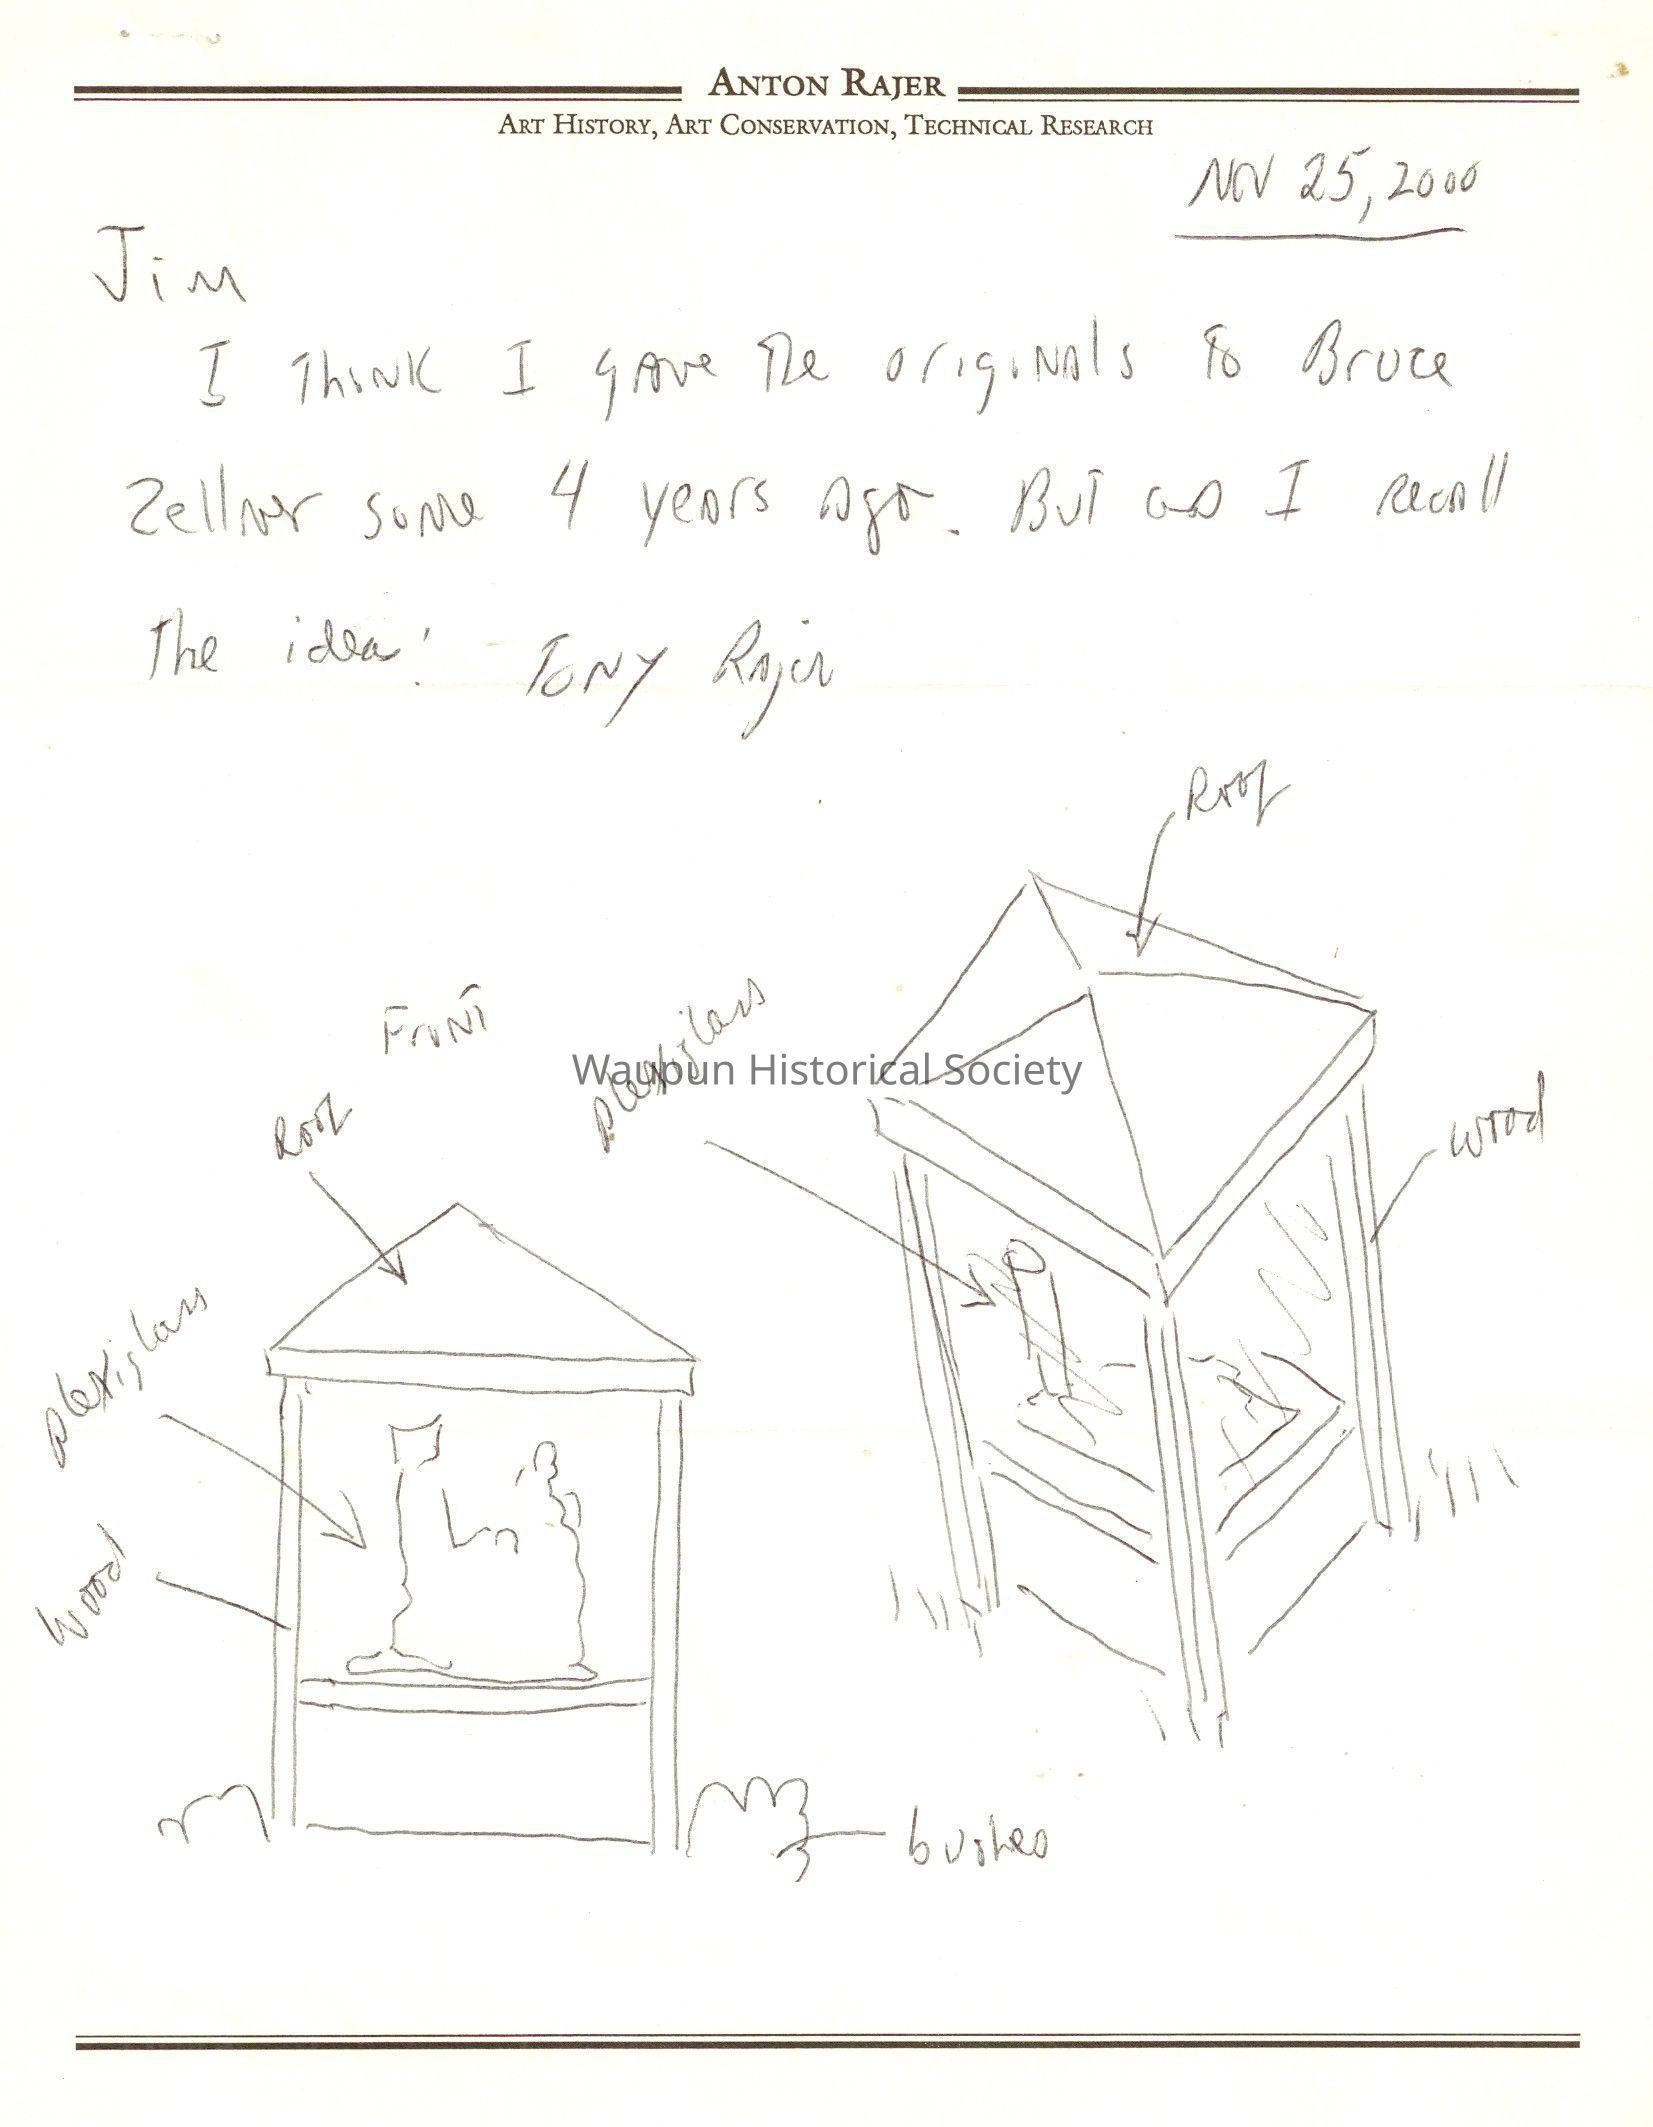 ANTON RAJER
ART HISTORY, ART CONSERVATION, TECHNICAL RESEARCH
NOV 25, 2000
Jim
I think I gave the originals to Bruce
Zellner some 4 years ago. But as I recall
the idea! Tony Rajer
Roof
Front
plexiglass
Waupun Historical Society
Roof
wood
plexiglass
wood
bushes